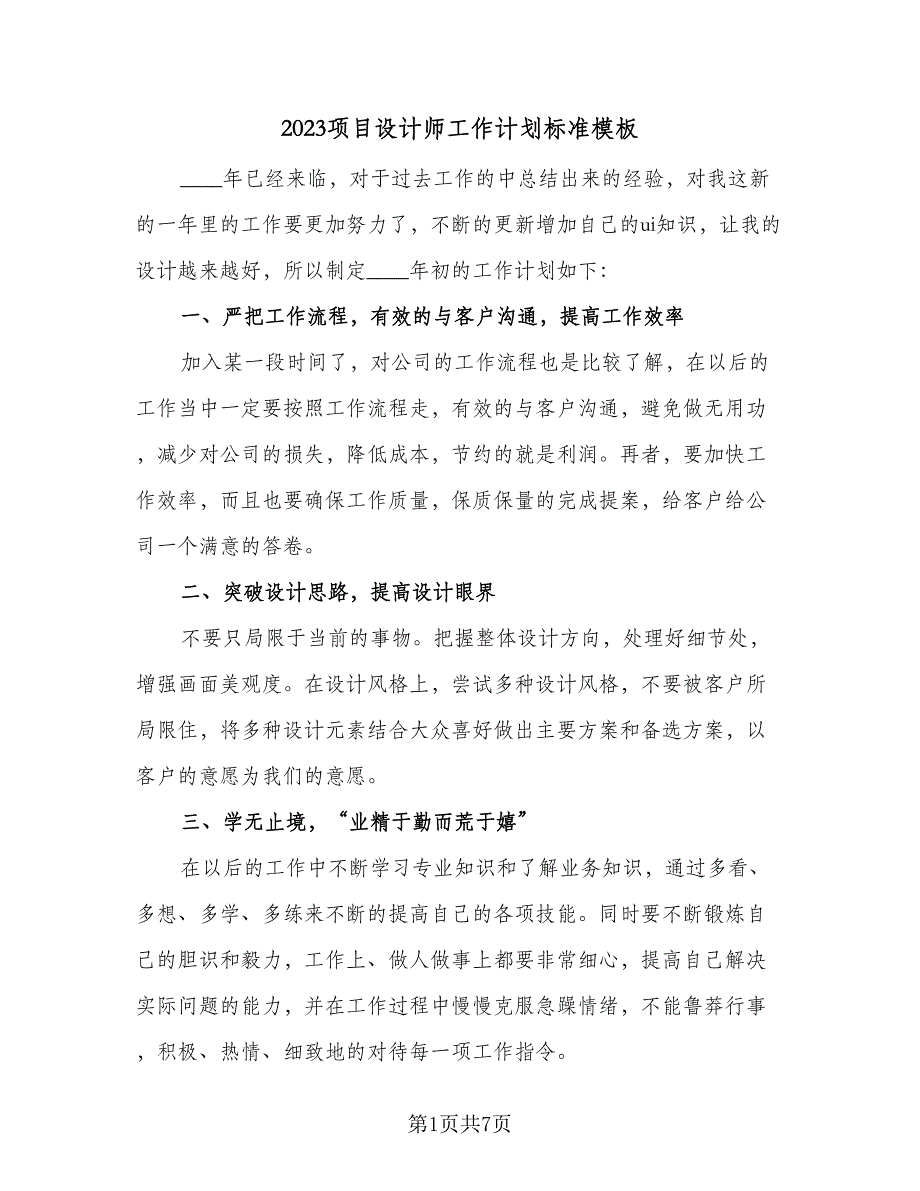 2023项目设计师工作计划标准模板
____年已经来临，对于过去工作的中总结出来的经验，对我这新
的一年里的工作要更加努力了，不断的更新增加自己的ui知识，让我的
设计越来越好，所以制定____年初的工作计划如下：
一、严把工作流程，有效的与客户沟通，提高工作效率
加入某一段时间了，对公司的工作流程也是比较了解，在以后的
工作当中一定要按照工作流程走，有效的与客户沟通，避免做无用功
，减少对公司的损失，降低成本，节约的就是利润。再者，要加快工
作效率，而且也要确保工作质量，保质保量的完成提案，给客户给公
司一个满意的答卷。
二、突破设计思路，提高设计眼界
不要只局限于当前的事物。把握整体设计方向，处理好细节处，
增强画面美观度。在设计风格上，尝试多种设计风格，不要被客户所
局限住，将多种设计元素结合大众喜好做出主要方案和备选方案，以
客户的意愿为我们的意愿。
三、学无止境，“业精于勤而荒于嬉”
在以后的工作中不断学习专业知识和了解业务知识，通过多看、
多想、多学、多练来不断的提高自己的各项技能。同时要不断锻炼自
己的胆识和毅力，工作上、做人做事上都要非常细心，提高自己解决
实际问题的能力，并在工作过程中慢慢克服急躁情绪，不能鲁莽行事
，积极、热情、细致地的对待每一项工作指令。
第1页共7页